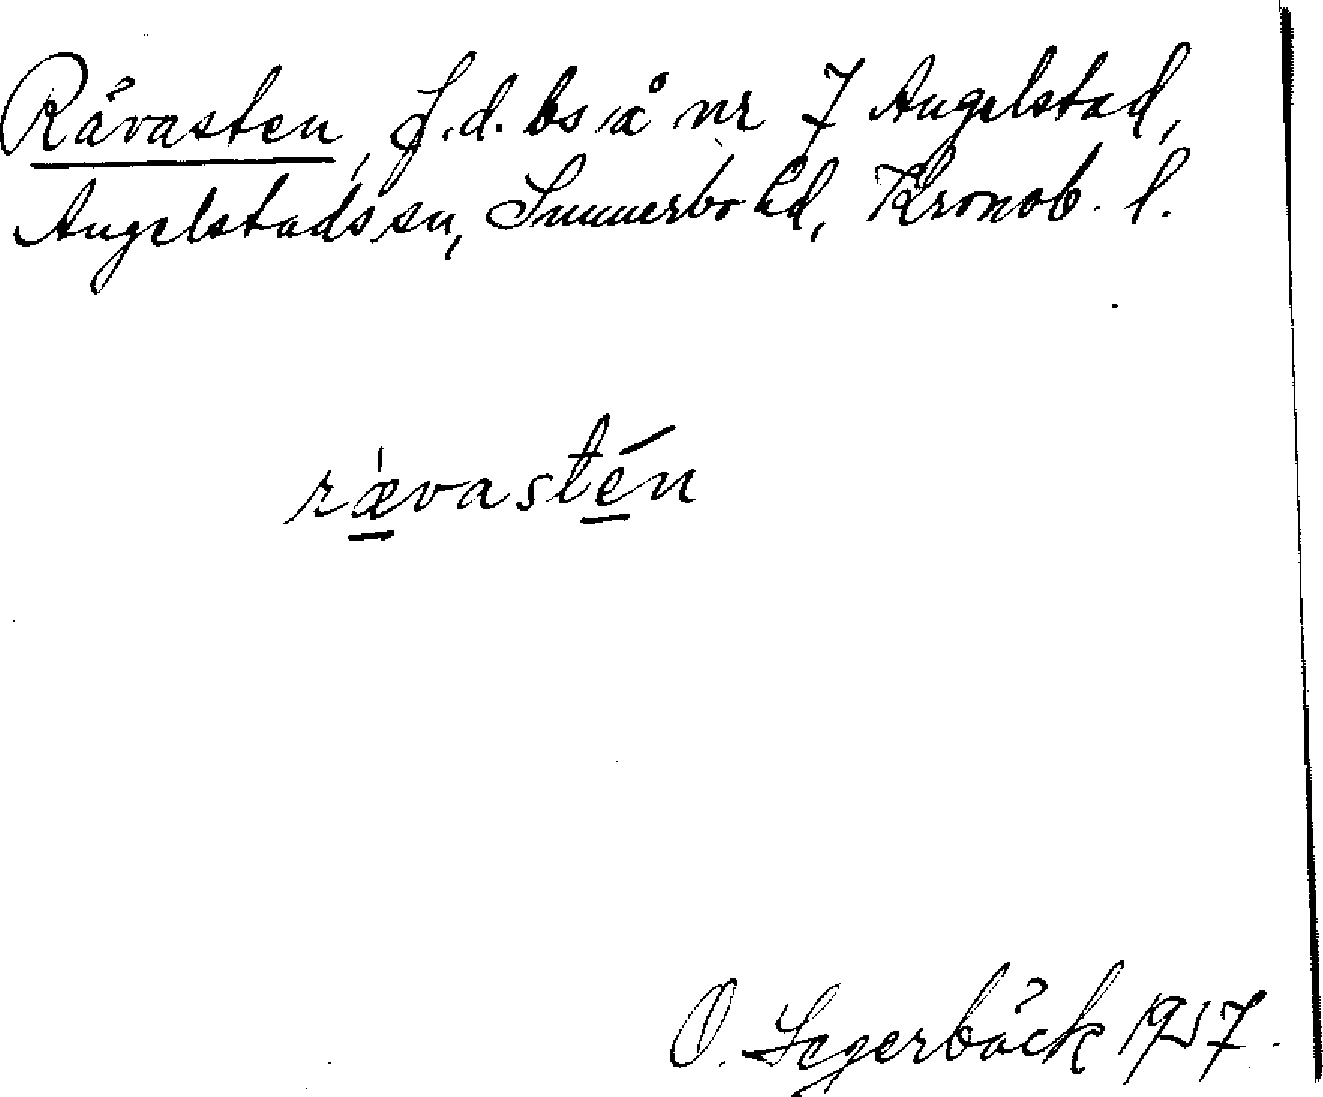 Rävasten, f.d. bs å nr 7 Angelstad,
Angelstads sn, Sunnerbo hd, Kronob. l.
rævastén
O. Segerbäck 1957.